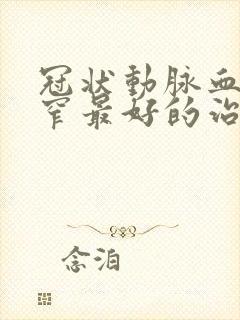 冠状動脉血
窄最好的治
念泊